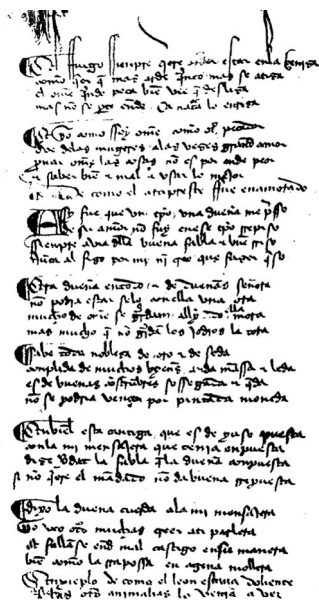 El ffuego ssienpre qere estar en la çeniza
como qer q mas arde qnto mas se atiza
el ome qndo peca bien vee q desliza
mas no se pte ende Ca natura lo entiza
E yo como ssoy ome como otro pecador
ove de las mugeres a las vezes grand amor
prouar ome las cosas no es por ende peor
e saber bien e mal e vsar lo mejor
De como el arçipreste ffue enamorado
Assy fue que vn tpo vna dueña me prisso
de su amor no fuy en ese tpo repiso
ssienpre avia della buena fabla e buen rriso
nunca al fizo por mi ni creo que fazer quiso
Era dueña en todo e de dueñas señora
no podia estar solo con ella vna ora
mucho de ome se guardan ally do ella mora
mas mucho q no guardan los jodios la tora
ssabe toda nobleza de oro e de seda
conplida de muchos bienes anda manssa e leda
es de buenas costunbres sossegada e queda
no se podria vençer por pintada moneda
Enbiel esta cantiga que es de yuso puesta
con la mi mensajera que tenia enpuesta
dize verdat la fabla q la dueña conpuesta
si no quiere el mandado no da buena rrepuesta
Dixo la dueña cuerda a la mi mensajera
yo veo otras muchas creer a ti parlera
et fallanse ende mal castigo en su manera
bien como la rraposa en agena mollera
Enxienplo de como el leon estava doliente
e las otras animalias lo venian a ver